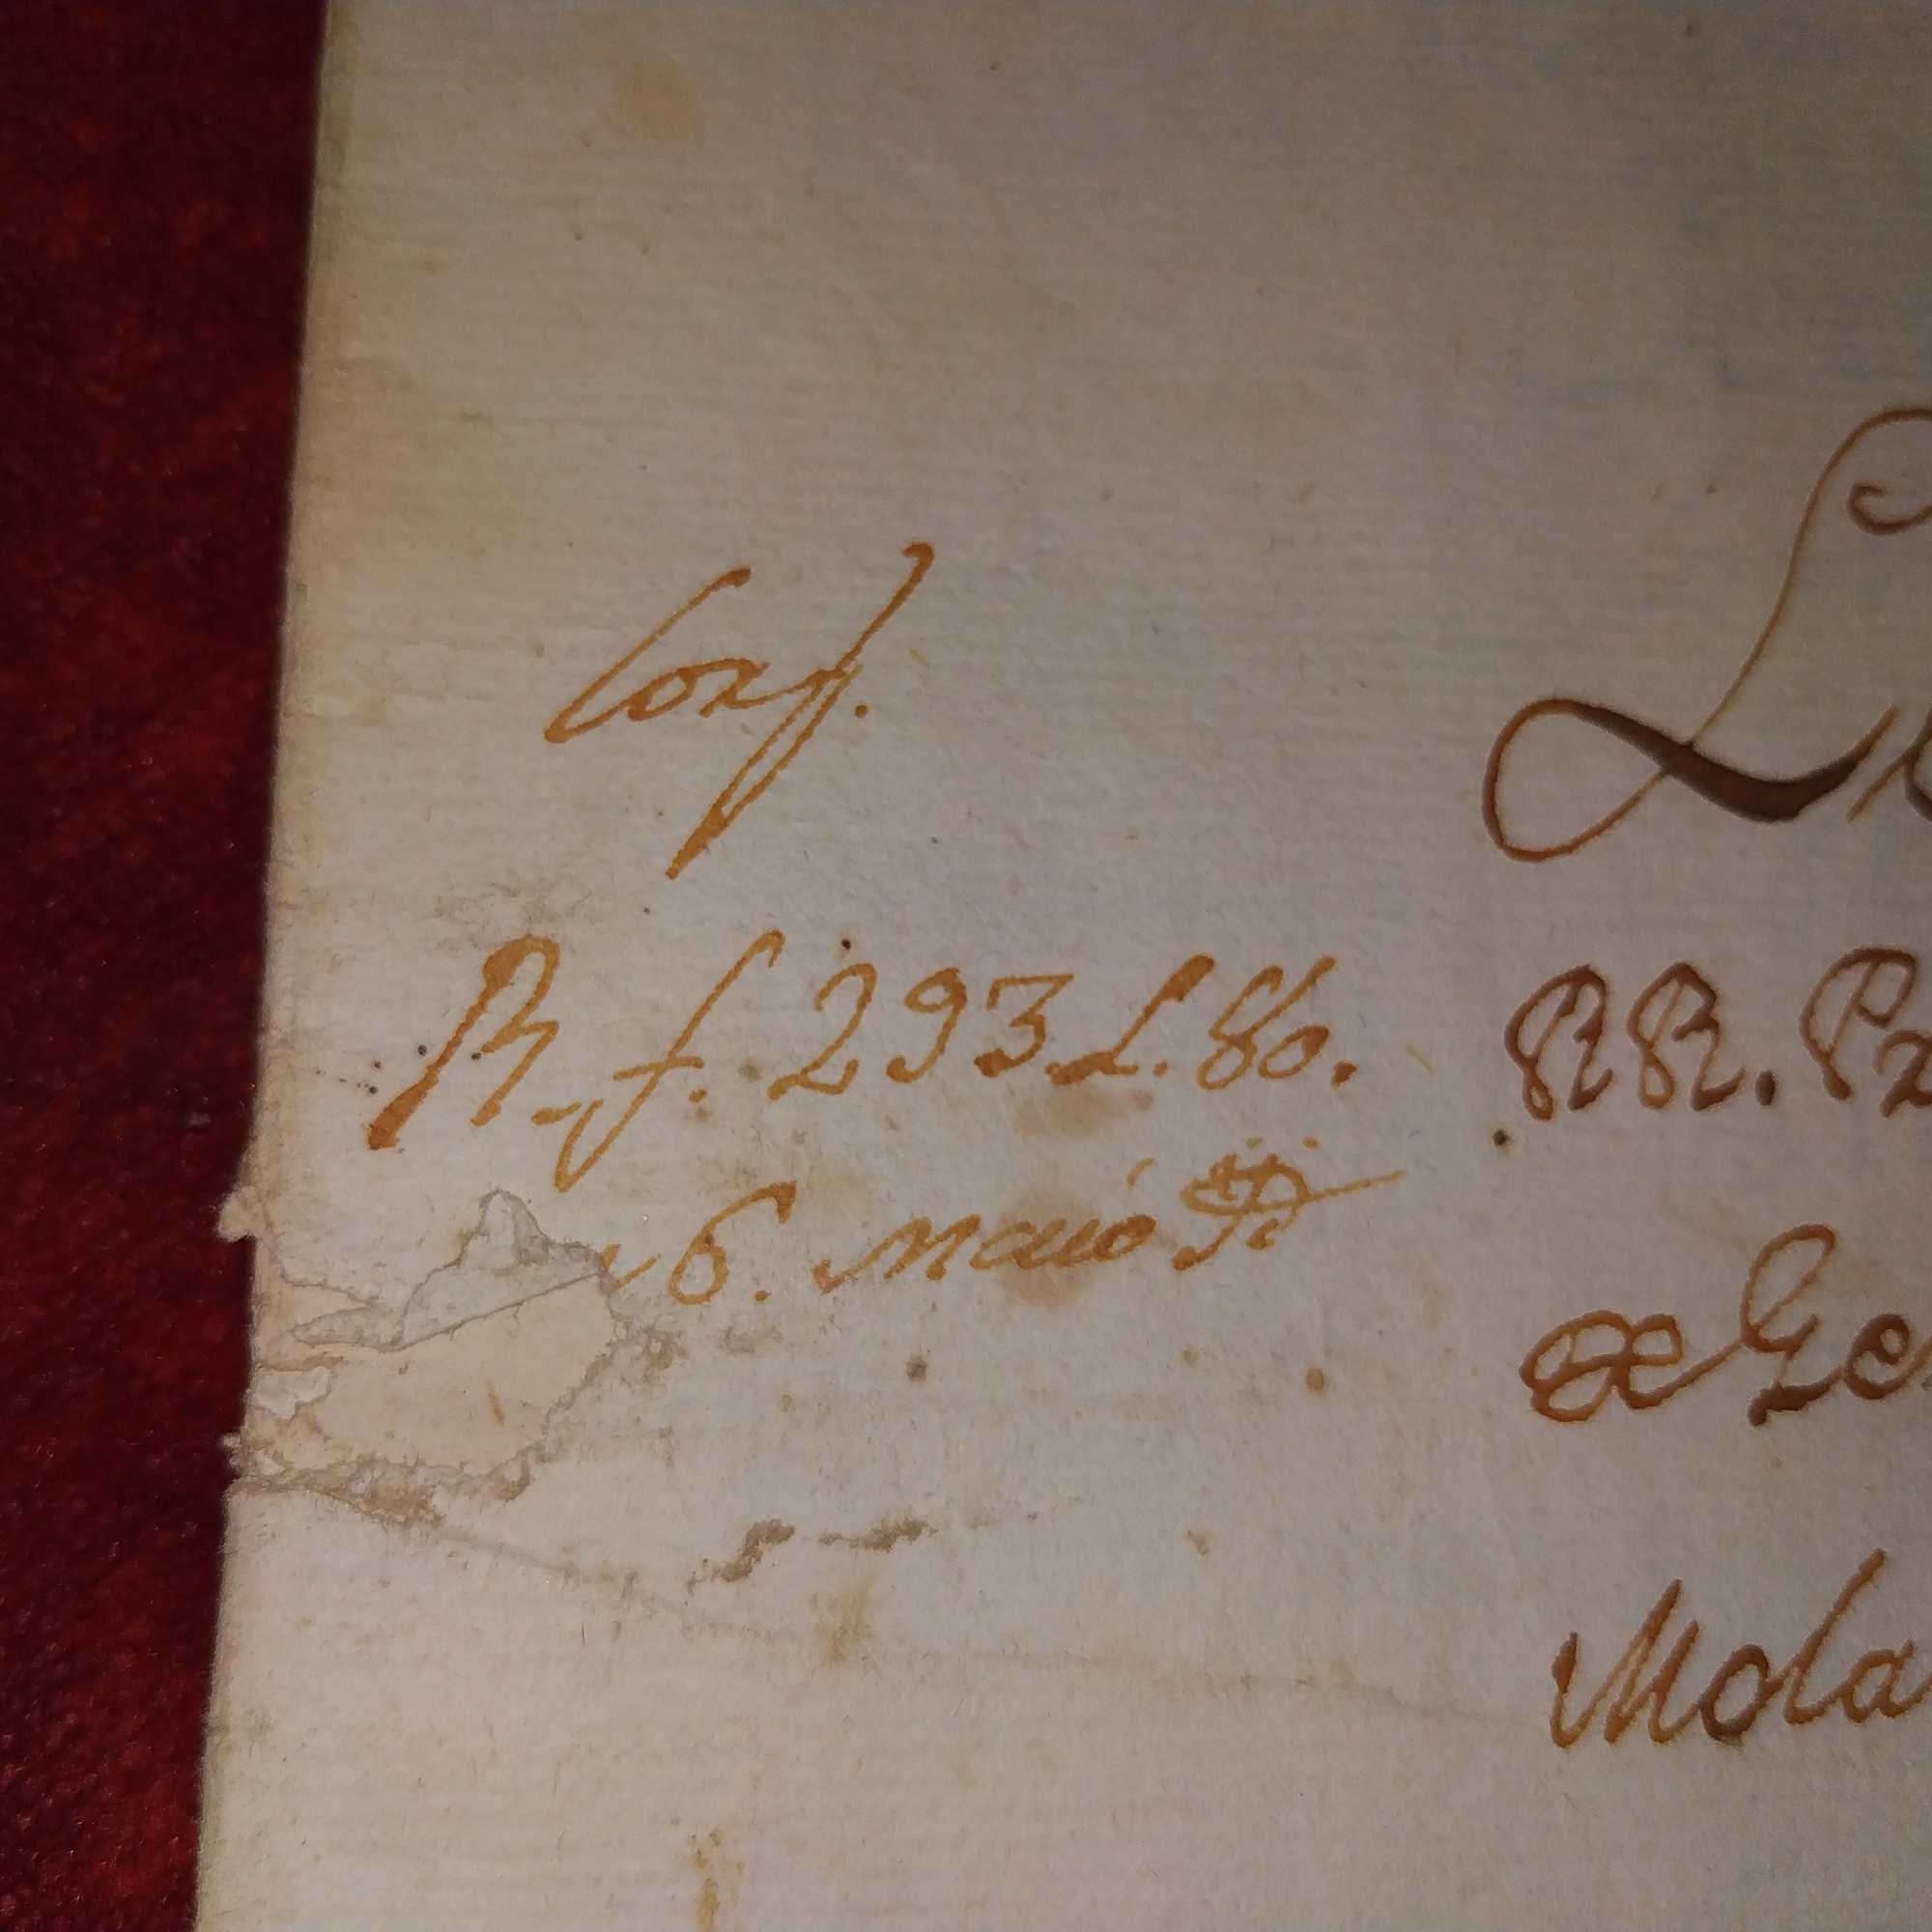 Conf.
R. f. 293 L. 80.
6. maio
L
RR. Pr
Ge
Mola